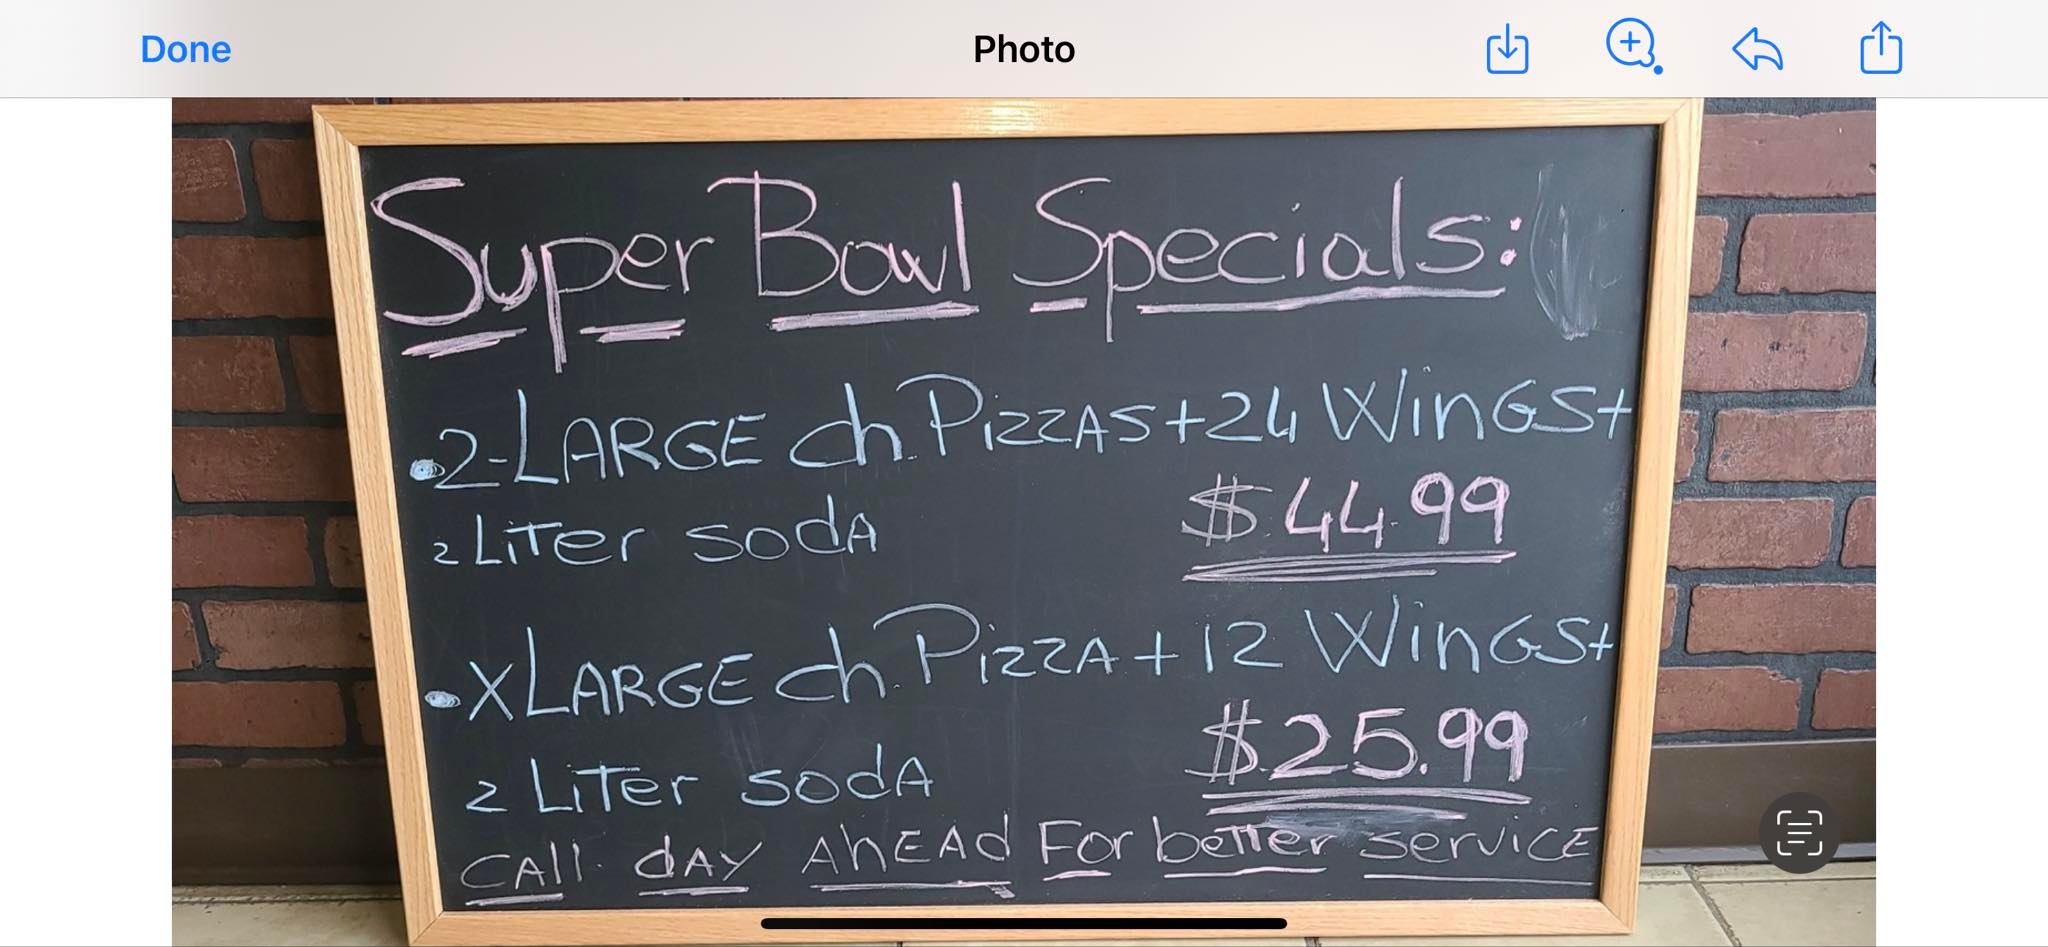 Done
Photo
Super Bowl Specials:
•2-LARGE ch. PizzAS+24 WinGS+
2 LiTer sodA
$44.99
•XLARGE ch. PizzA+12 WinGS+
2 LiTer sodA
$25.99
CAll dAY AhEAd For better servicE